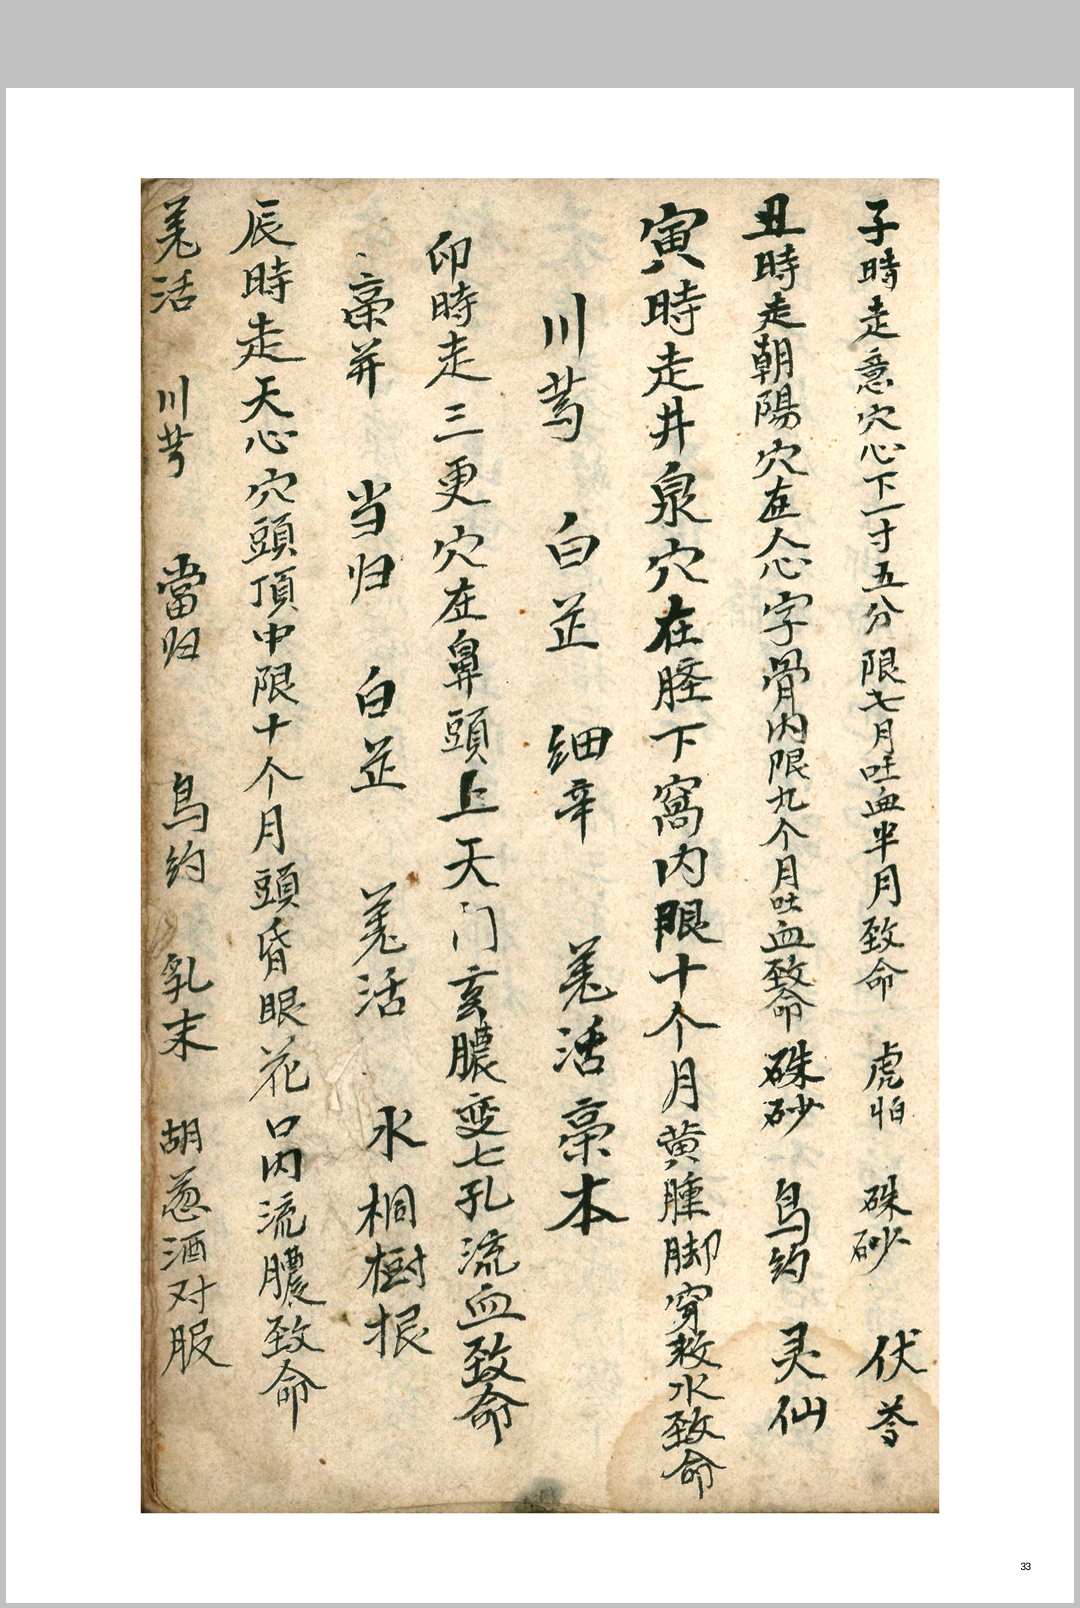 子時走意穴心下一寸五分限七月吐血半月致命 虎怕 硃砂 伏苓
丑時走朝陽穴在人心字骨内限九个月吐血致命 硃砂 烏約 灵仙
寅時走井泉穴在脛下窩内眼十个月黄腫脚穿救水致命
川芎 白芷 细辛 羗活 藁本
卯時走三更穴在鼻頭上天门亥膿变七孔流血致命
藁并 当归 白芷 羗活 水桐樹根
辰時走天心穴頭頂中限十个月頭昏眼花口内流膿致命
羗活 川芎 當归 烏约 乳末 胡葱酒对服
33